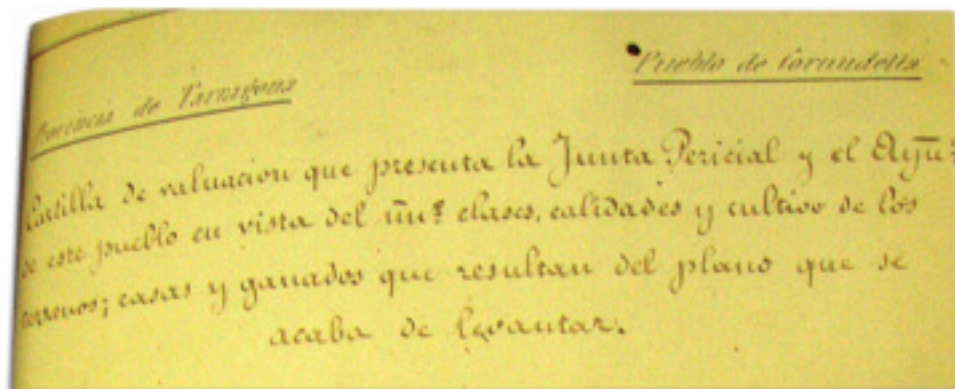 Provincia de Tarragona
Pueblo de Cornudella
Cartilla de valuacion que presenta la Junta Pericial y el Ayũ.º
de este pueblo en vista del ũu.º clases, calidades y cultivo de los
terrenos; casas y ganados que resultan del plano que se
acaba de levantar.